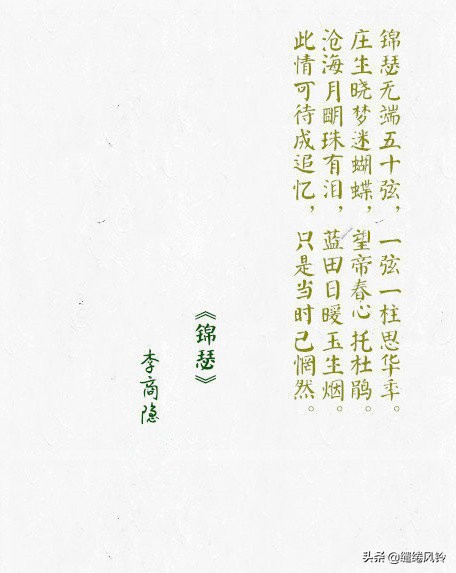 锦瑟无端五十弦，一弦一柱思华年。
庄生晓梦迷蝴蝶，望帝春心托杜鹃。
沧海月明珠有泪，蓝田日暖玉生烟。
此情可待成追忆，只是当时已惘然。
《锦瑟》
李商隐
头条 @缱绻风铃